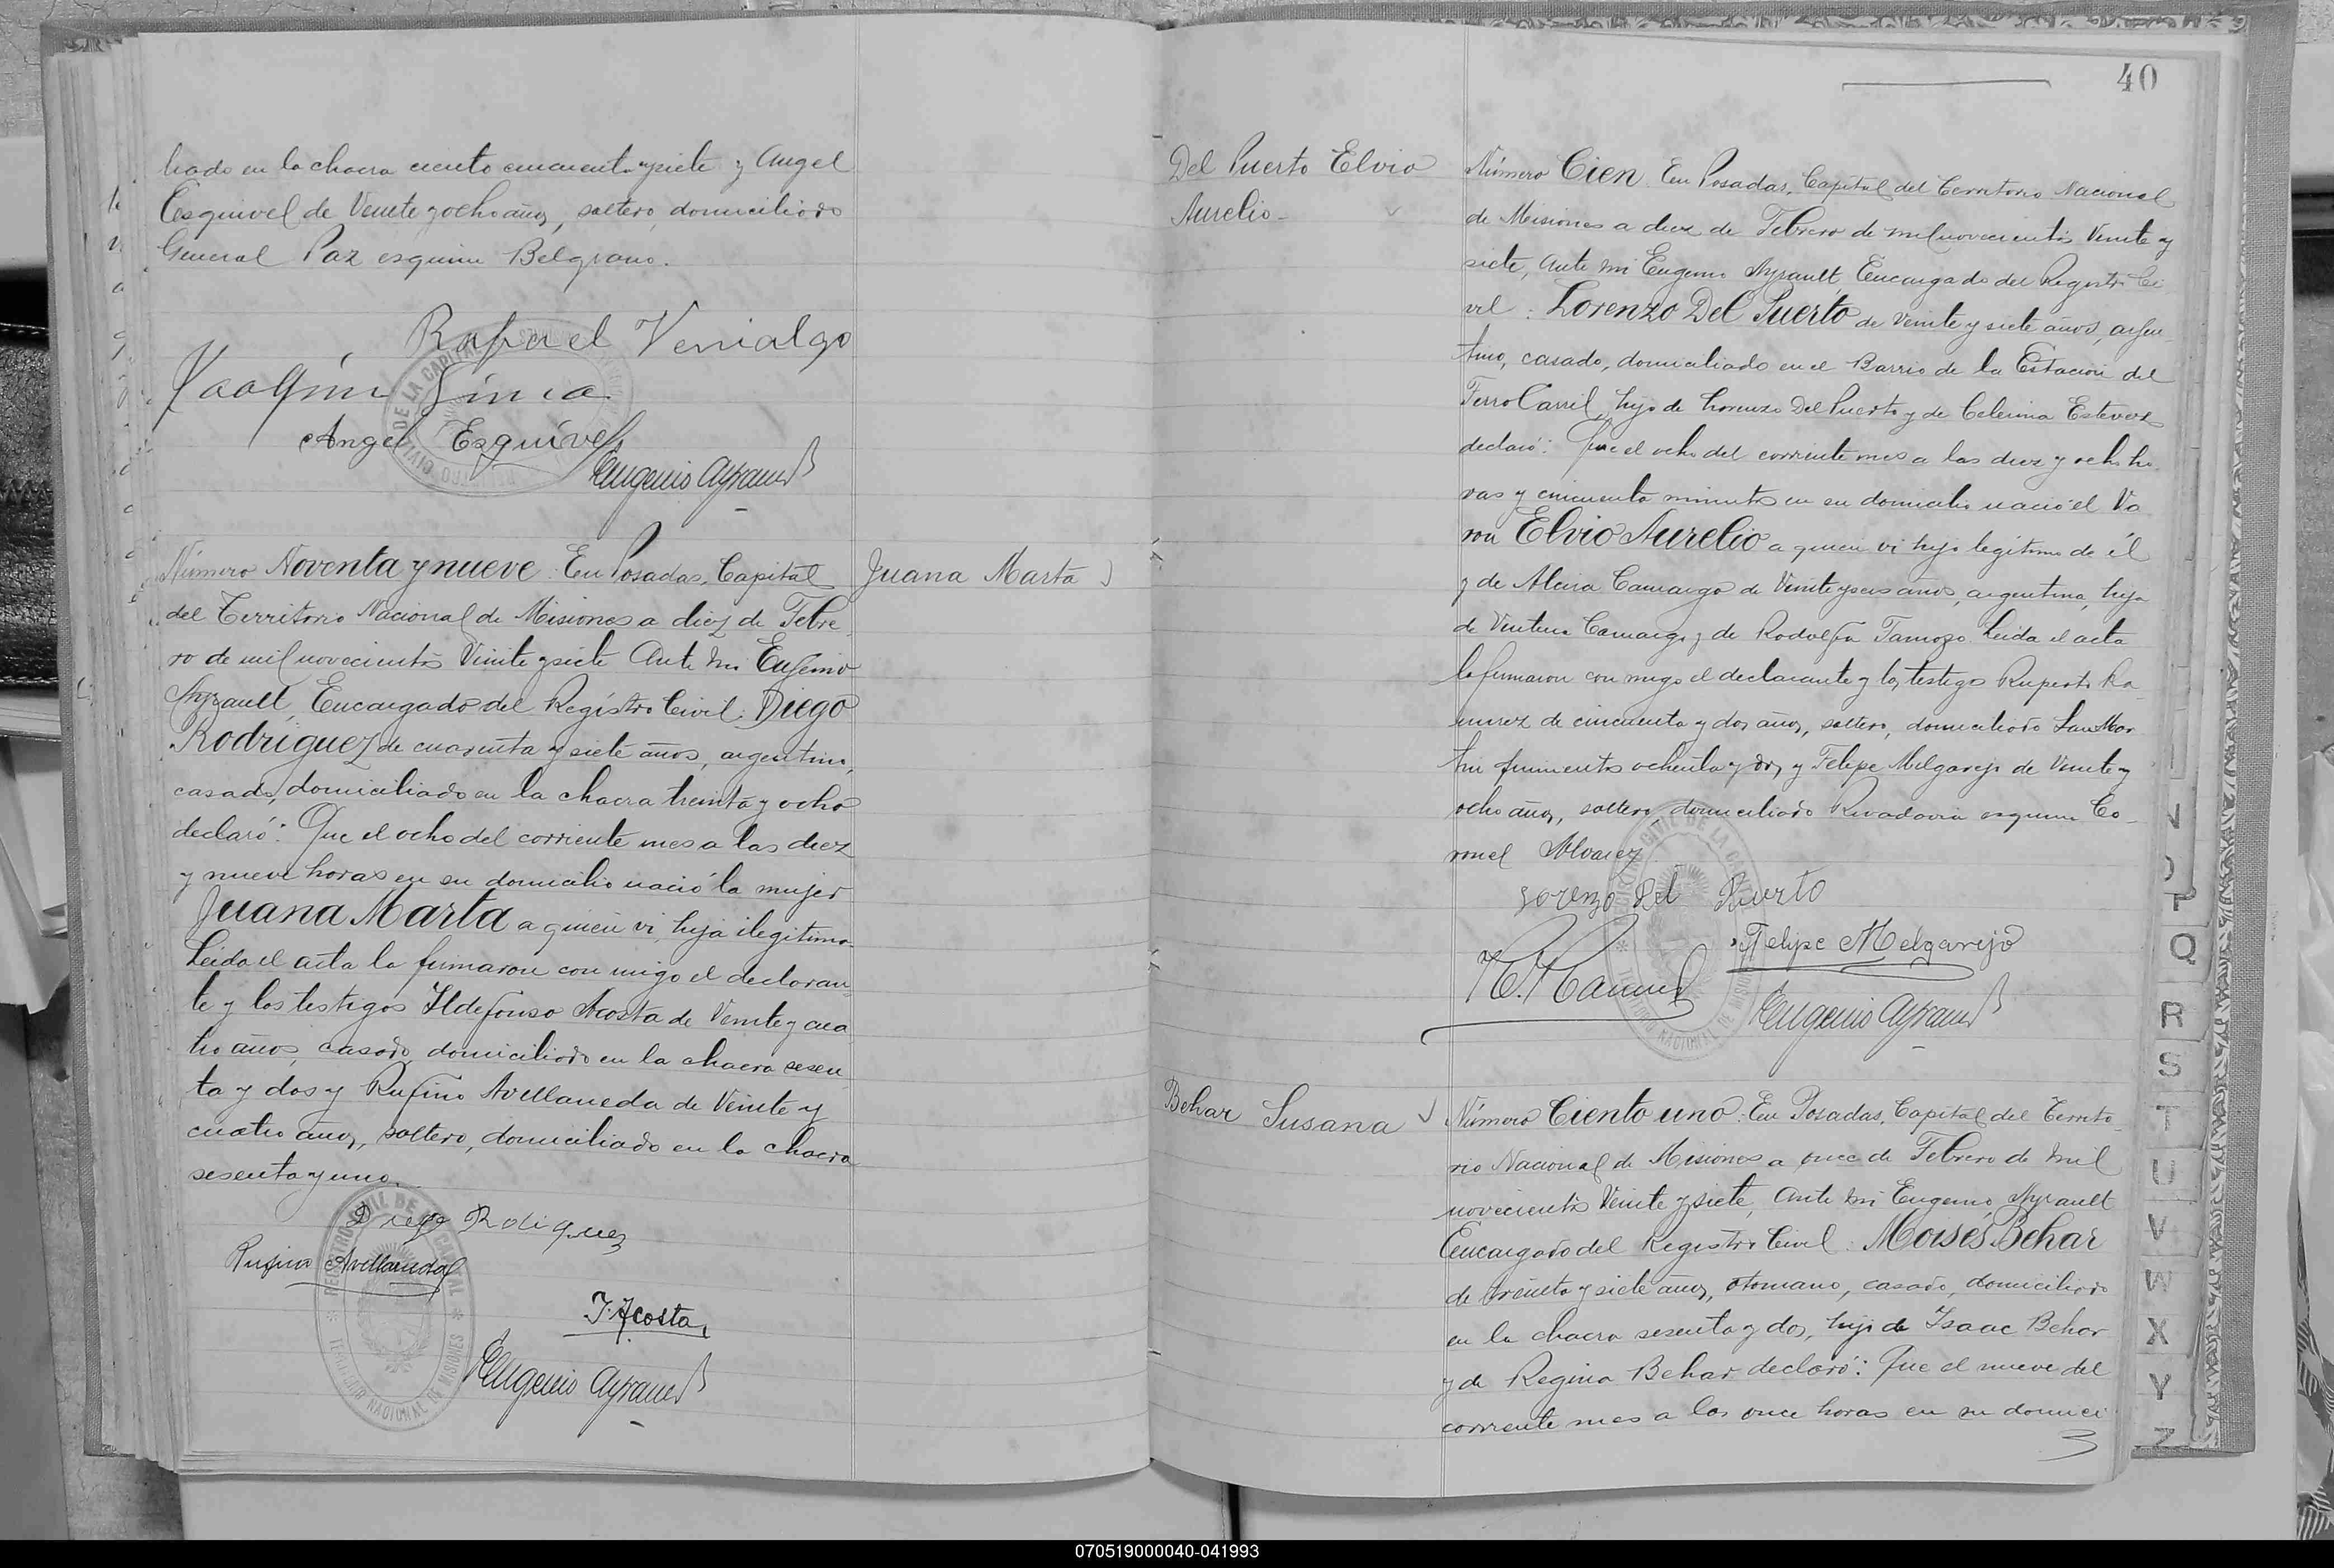 liado en la chacra ciento cincuenta y siete y Angel
Esquivel de Veinte y ocho años, soltero, domiciliado
General Paz esquina Belgrano.
Rafael Venialgo
Angel Esquivel
Eugenio Ayrault
Número Noventa y nueve: En Posadas, Capital
del Territorio Nacional de Misiones a diez de Febre
ro de mil novecientos Veinte y siete Ante mi Eugenio
Ayrault, Encargado del Registro Civil: Diego
Rodriguez de cuarenta y siete años, argentino,
casado, domiciliado en la chacra treinta y ocho
declaró: Que el ocho del corriente mes a las diez
y nueve horas en su domicilio nació la mujer
Juana Marta a quien vi, hija ilegitima
Leida el acta la firmaron con migo el declaran
te y los testigos Ildefonso Acosta de Veinte y cua
tro años, casado, domiciliado en la chacra sesen
ta y dos y Rufino Avellaneda de Veinte y
cuatro años, soltero, domiciliado en la chacra
sesenta y uno.
Diego Rodiguez
Rufino Avellaneda
I. Acosta
Eugenio Ayrault
Juana Marta
40
Del Puerto Elvio
Aurelio
Número Cien. En Posadas, Capital del Territorio Nacional
de Misiones a diez de Febrero de mil novecientos Veinte y
siete, Ante mi Eugenio Ayrault, Encargado del Registro Ci
vil: Lorenzo Del Puerto de Veinte y siete años, argen
tino, casado, domiciliado en el Barrio de la Estación del
Ferro Carril, hijo de Lorenzo Del Puerto y de Celerina Estevez
declaró: Que el ocho del corriente mes a las diez y ocho ho
ras y cincuenta minutos en su domicilio nació el Va
ron Elvio Aurelio a quien vi hijo legítimo de él
y de Alcira Camargo de Veinte y seis años, argentina, hija
de Camargo y de Rodolfa Leida el acta
la firmaron con migo el declarante y los testigos Ruperto Ra
mirez de cincuenta y dos años, soltero, domiciliado San Mar
tin quinientos ochenta y dos, y Felipe Melgarejo de Veinte y
ocho años, soltero, domiciliado Rivadavia esquina Co
ronel Alvarez
Lorenzo Del Puerto
Felipe Melgarejo
Eugenio Ayrault
REGISTRO CIVIL DE LA CAPITAL
TERRITORIO NACIONAL DE MISIONES
Behar Susana
Número Ciento uno: En Posadas, Capital del Territo
rio Nacional de Misiones a once de Febrero de mil
novecientos Veinte y siete, Ante mi Eugenio Ayrault
Encargado del Registro Civil: Moisés Behar
de treinta y siete años, otomano, casado, domiciliado
en la chacra sesenta y dos, hijo de Isaac Behar
y de Regina Behar declaró: Que el nueve del
corriente mes a las once horas en su domici
P
Q
R
S
T
U
V
W
X
Y
Z
070519000040-041993